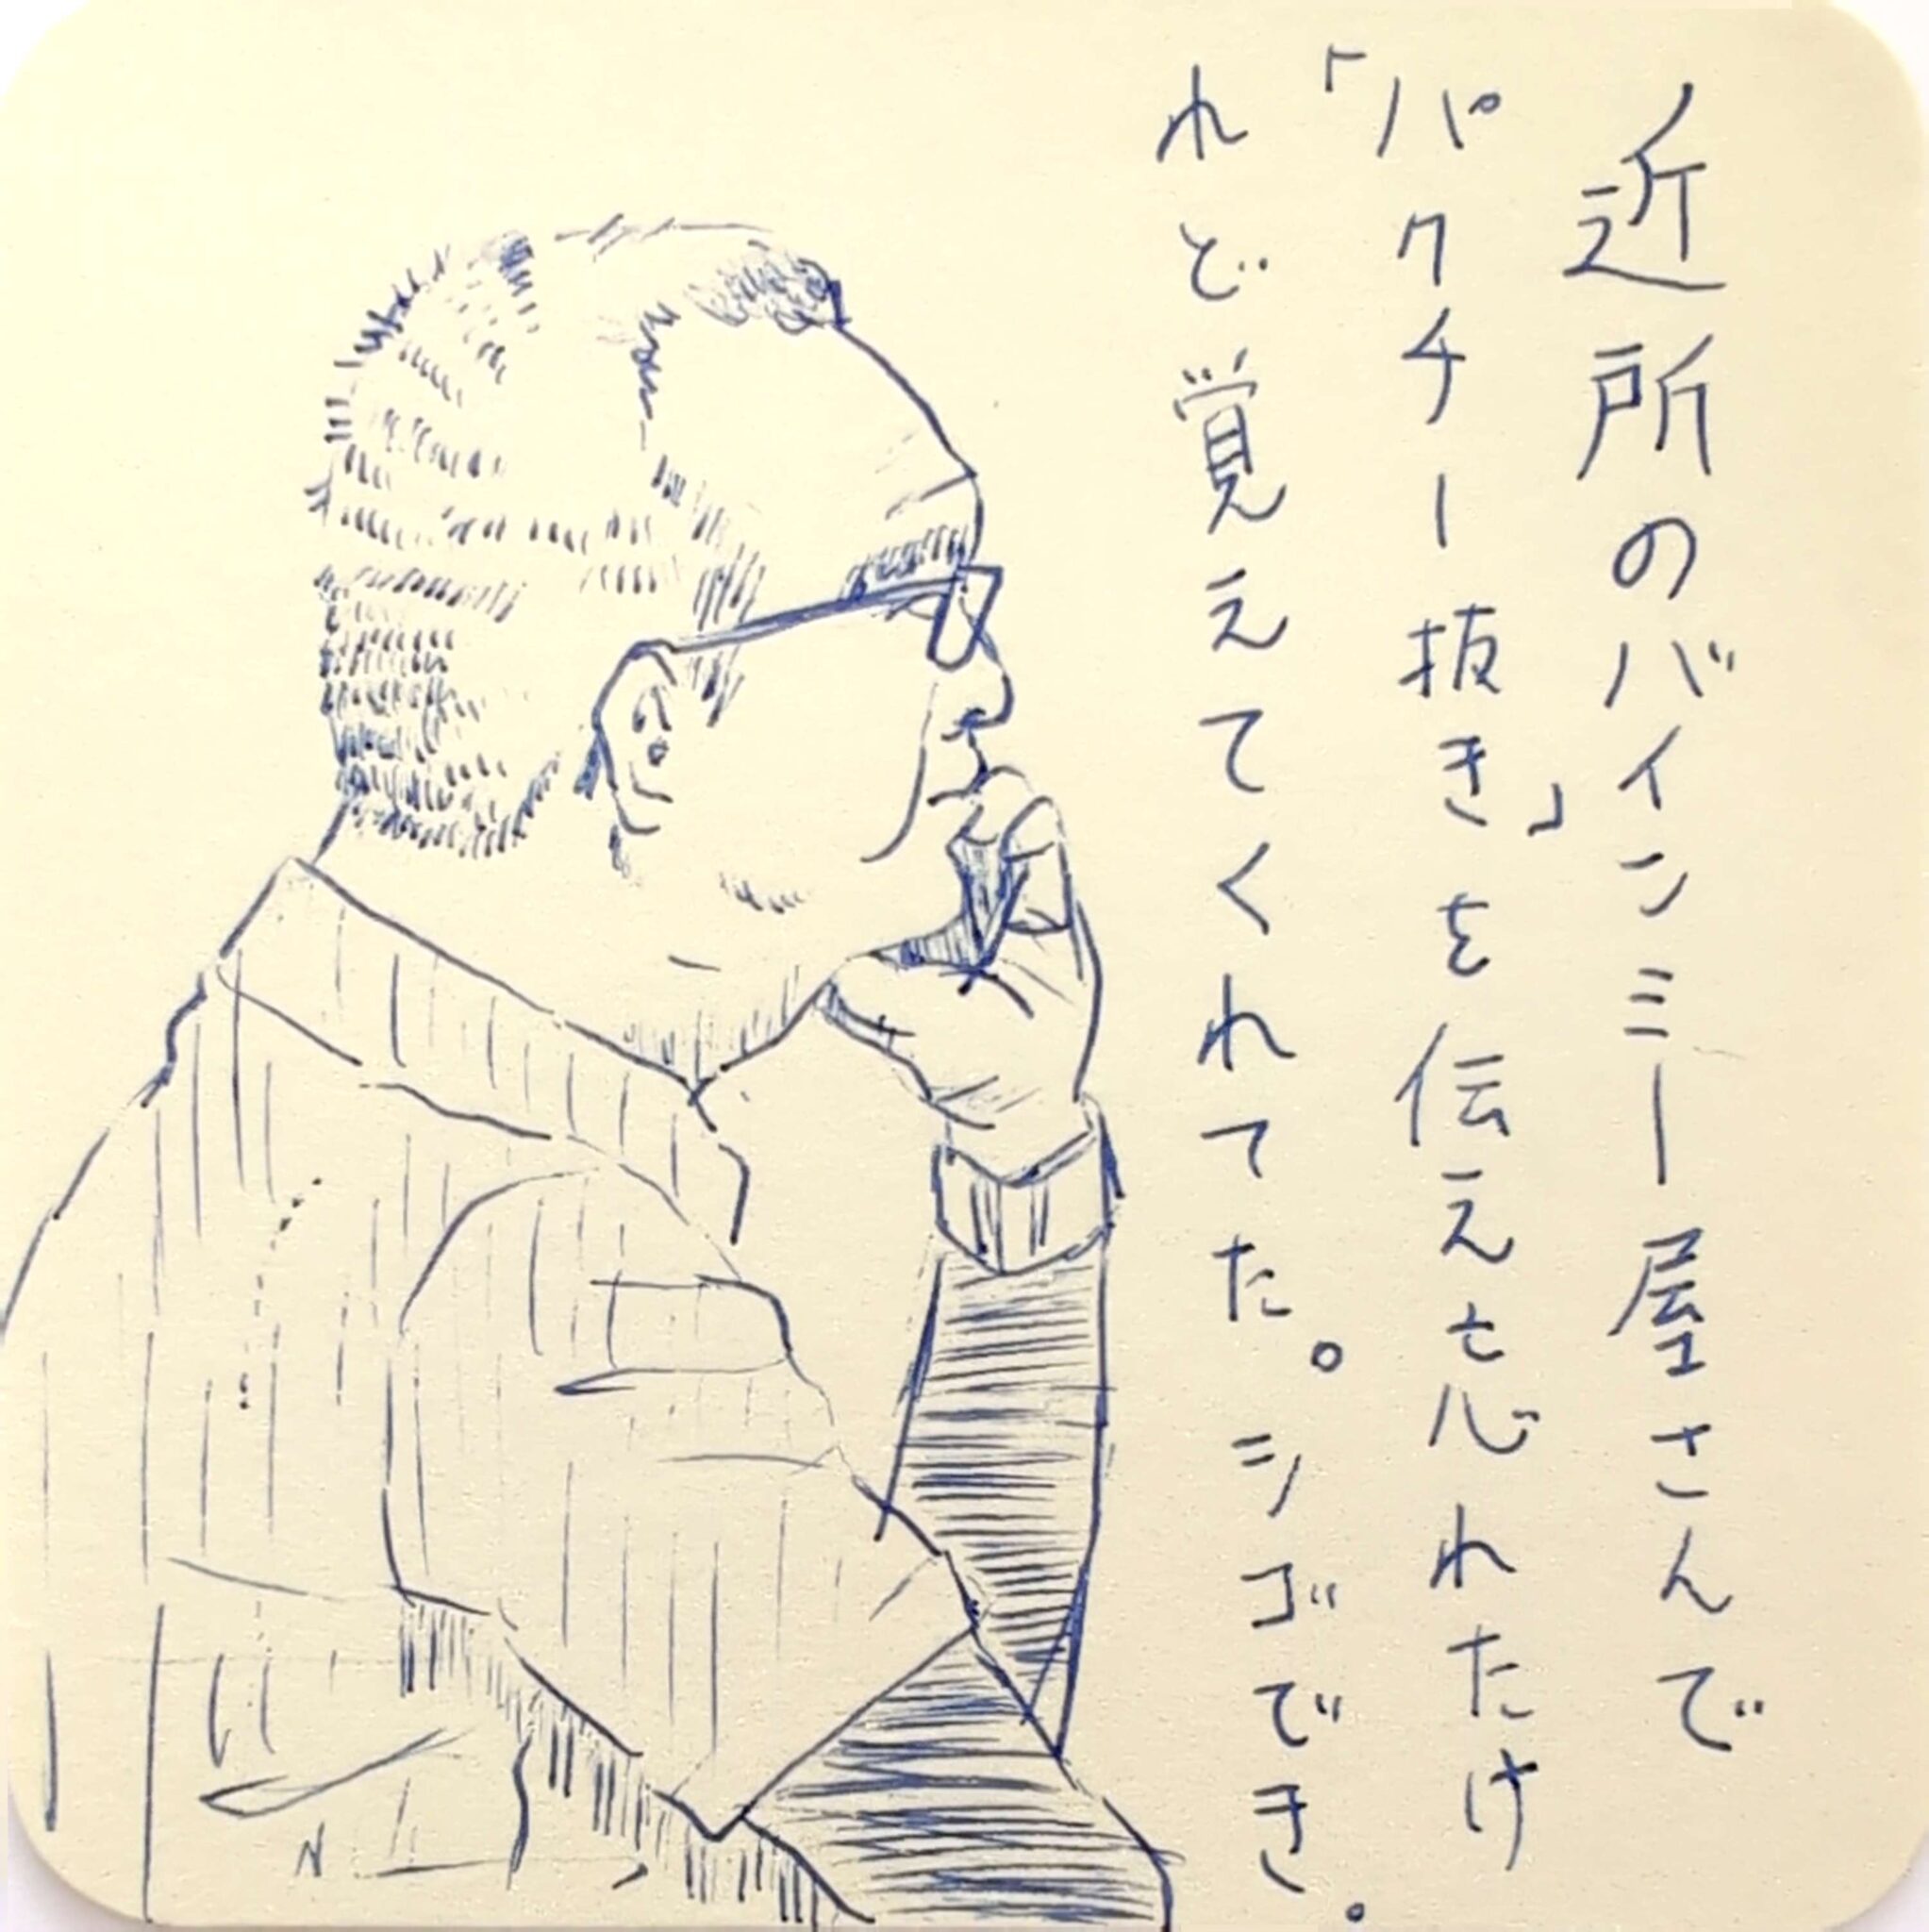 近所のバインミー屋さんで
「パクチー抜き」を伝え忘れたけ
れど覚えてくれてた。シゴでき。